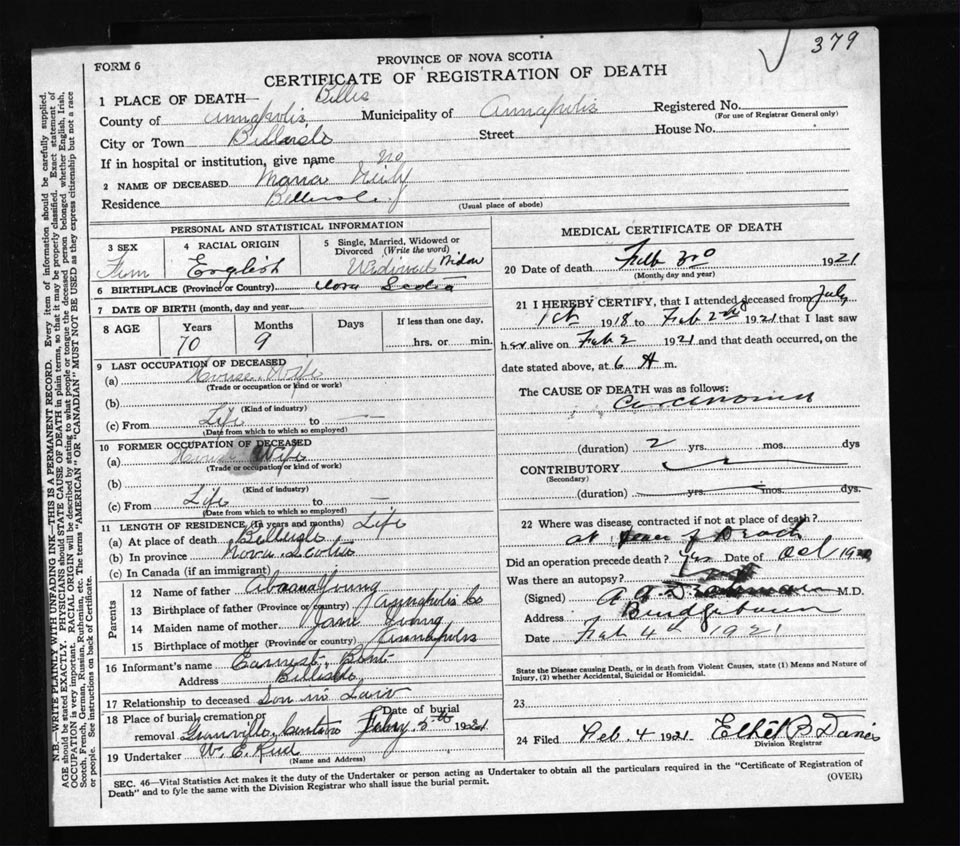 379
FORM 6
PROVINCE OF NOVA SCOTIA
CERTIFICATE OF REGISTRATION OF DEATH
1 PLACE OF DEATH— Billis
County of Annapolis Municipality of Annapolis Registered No.
(For use of Registrar General only)
City or Town Bellisle Street House No.
If in hospital or institution, give name no
2 NAME OF DECEASED Maria
Residence Bellisle
(Usual place of abode)
PERSONAL AND STATISTICAL INFORMATION
3 SEX 4 RACIAL ORIGIN 5 Single, Married, Widowed or Divorced (Write the word)
Fem English Widowed Widow
6 BIRTHPLACE (Province or Country) Nova Scotia
7 DATE OF BIRTH (month, day and year)
8 AGE Years Months Days If less than one day,
70 9 hrs. or min.
9 LAST OCCUPATION OF DECEASED
(a) House Wife
(Trade or occupation or kind or work)
(b)
(Kind of industry)
(c) From Life to —
(Date from which to which so employed)
10 FORMER OCCUPATION OF DECEASED
(a) House Wife
(Trade or occupation or kind of work)
(b)
(Kind of industry)
(c) From Life to —
(Date from which so employed)
11 LENGTH OF RESIDENCE (in years and months) Life
(a) At place of death Bellisle
(b) In province Nova Scotia
(c) In Canada (if an immigrant)
Parents
12 Name of father Young
13 Birthplace of father (Province or country) Annapolis Co
14 Maiden name of mother Young
15 Birthplace of mother (Province or country) Annapolis
16 Informant's name Earnest Bent
Address Bellisle
17 Relationship to deceased Son in Law
18 Place of burial, cremation or removal Granville Date of burial 5th 1921
19 Undertaker W. E. Reed
(Name and Address)
MEDICAL CERTIFICATE OF DEATH
20 Date of death Feb 3rd 1921
(Month, day and year)
21 I HEREBY CERTIFY, that I attended deceased from July
1st 1918 to Feb 2nd 1921 that I last saw
her alive on Feb 2 1921 and that death occurred, on the
date stated above, at 6 A m.
The CAUSE OF DEATH was as follows:
Carcinoma
(duration) 2 yrs. mos. dys
CONTRIBUTORY
(Secondary)
(duration) yrs. mos. dys.
22 Where was disease contracted if not at place of death?
at place of Death
Did an operation precede death? yes Date of Oct 1920
Was there an autopsy? not
(Signed) A M.D.
Address Bridgetown
Date Feb 4th 1921
State the Disease causing Death, or in death from Violent Causes, state (1) Means and Nature of
Injury, (2) whether Accidental, Suicidal or Homicidal.
23
24 Filed Feb. 4 1921 Ethel B
Division Registrar
SEC. 46—Vital Statistics Act makes it the duty of the Undertaker or person acting as Undertaker to obtain all the particulars required in the "Certificate of Registration of
Death" and to fyle the same with the Division Registrar who shall issue the burial permit.
(OVER)
N.B.—WRITE PLAINLY WITH UNFADING INK—THIS IS A PERMANENT RECORD. Every item of information should be carefully supplied.
AGE should be stated EXACTLY. PHYSICIANS should STATE CAUSE OF DEATH in plain terms, so that it may be properly classified. Exact statement of
OCCUPATION is very important. RACIAL ORIGIN will be described by stating to what people or tongue the deceased person belonged whether English, Irish,
Scotch, French, German, Russian, Ruthenian, etc. The terms "AMERICAN" OR "CANADIAN" MUST NOT BE USED as they express citizenship but not a race
or people. See instructions on back of Certificate.